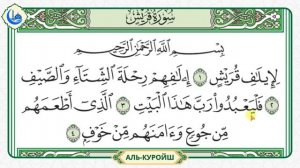 سُورَةُ قُرَيْشٍ
بِسْمِ اللَّهِ الرَّحْمَٰنِ الرَّحِيمِ
لِإِيلَٰفِ قُرَيْشٍ ١ إِۦلَٰفِهِمْ رِحْلَةَ الشِّتَآءِ وَالصَّيْفِ
٢ فَلْيَعْبُدُوا۟ رَبَّ هَٰذَا الْبَيْتِ ٣ الَّذِىٓ أَطْعَمَهُم
مِّن جُوعٍ وَءَامَنَهُم مِّنْ خَوْفٍۭ ٤
АЛЬ-КУРОЙШ